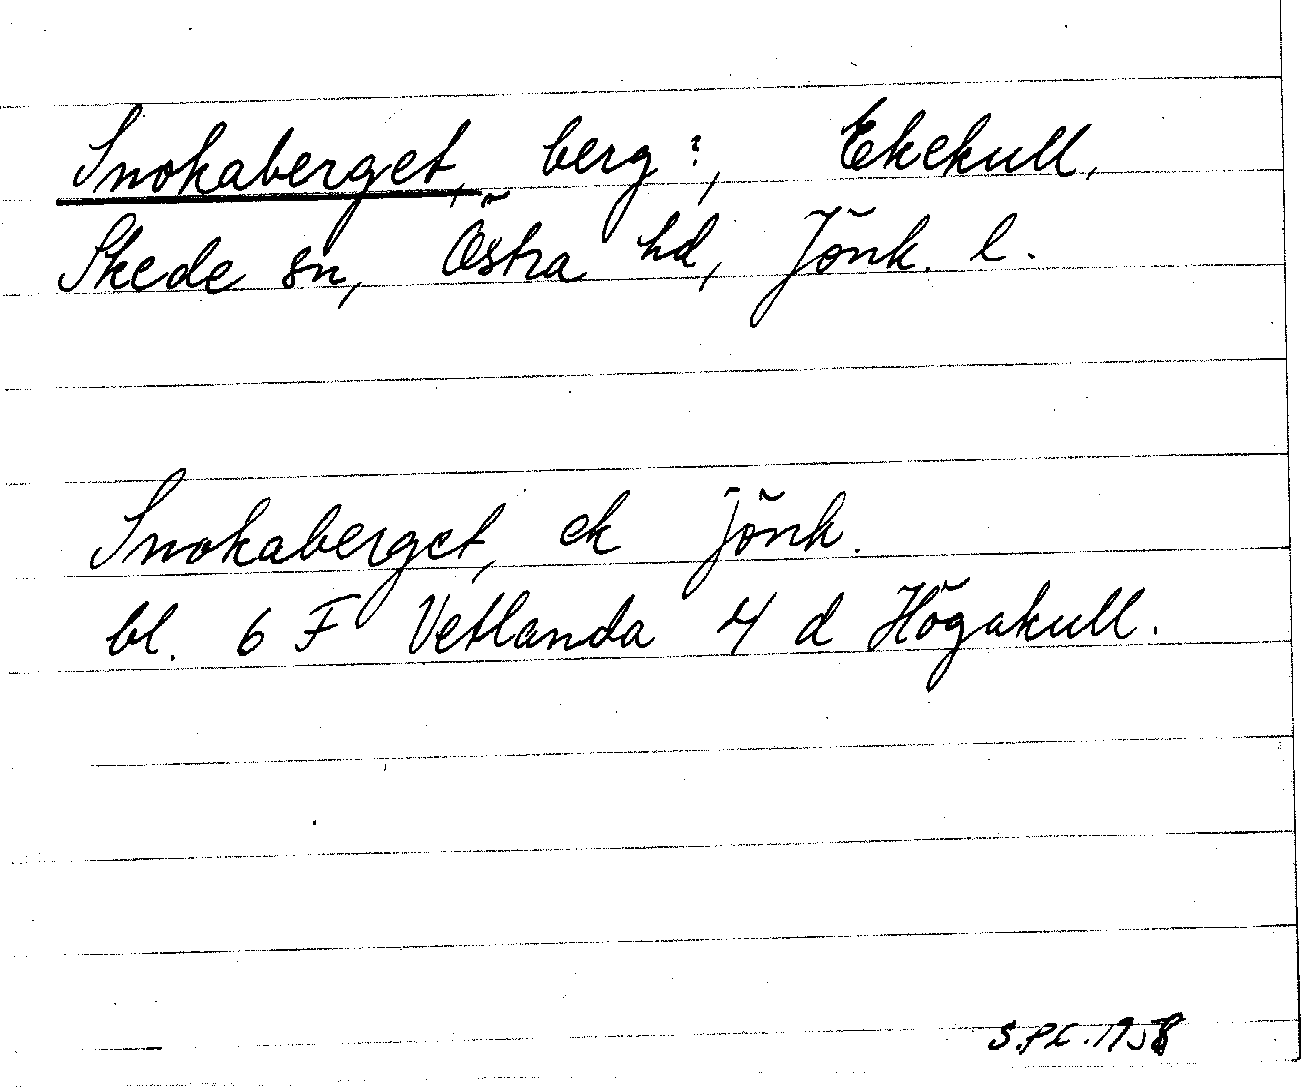 Snokaberget, berg?, Ekekull,
Skede sn, Östra hd, Jönk. l.
Snokaberget, ek Jönk.
bl. 6 F Vetlanda 4 d Högakull.
S.P.L. 1958